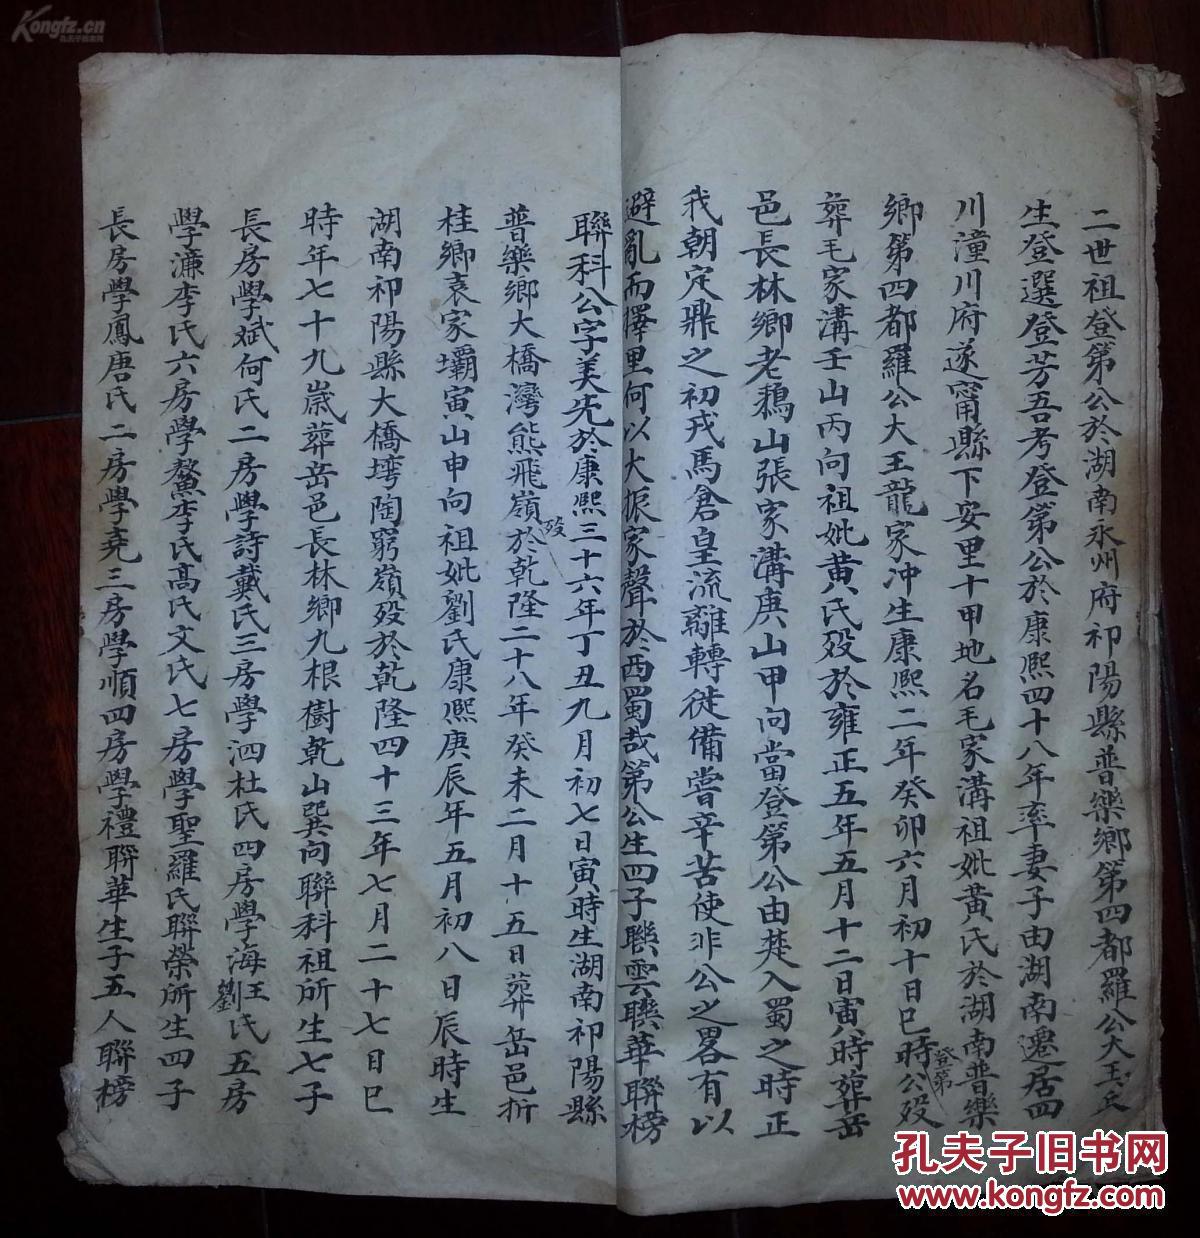 二世祖登第公於湖南永州府祁陽縣普樂鄉第四都羅公大王丘
生登選登芳吾考登第公於康熙四十八年率妻子由湖南遷居四
川潼川府遂甯縣下安里十甲地名毛家溝祖妣黃氏於湖南普樂
鄉第四都羅公大王龍家冲生康熙二年癸卯六月初十日巳時登第公歿
葬毛家溝壬山丙向祖妣黃氏歿於雍正五年五月十二日寅時葬岳
邑長林鄉老鵝山張家溝庚山甲向當登第公由楚入蜀之時正
我朝定鼎之初戎馬倉皇流離轉徙備嘗辛苦使非公之畧有以
避亂而擇里何以大振家聲於西蜀哉第公生四子聯雲聯華聯榜
聯科公字美先於康熙三十六年丁丑九月初七日寅時生湖南祁陽縣
普樂鄉大橋灣熊飛嶺歿於乾隆二十八年癸未二月十五日葬岳邑折
桂鄉袁家壩寅山申向祖妣劉氏康熙庚辰年五月初八日辰時生
湖南祁陽縣大橋塆陶窮嶺歿於乾隆四十三年七月二十七日巳
時年七十九歲葬岳邑長林鄉九根樹乾山巽向聯科祖所生七子
長房學斌何氏二房學詩戴氏三房學泗杜氏四房學海王劉氏五房
學濂李氏六房學鰲李氏高氏文氏七房學聖羅氏聯榮所生四子
長房學鳳唐氏二房學堯三房學順四房學禮聯華生子五人聯榜
Kongfz.cn
孔夫子旧书网
孔夫子旧书网
www.kongfz.com